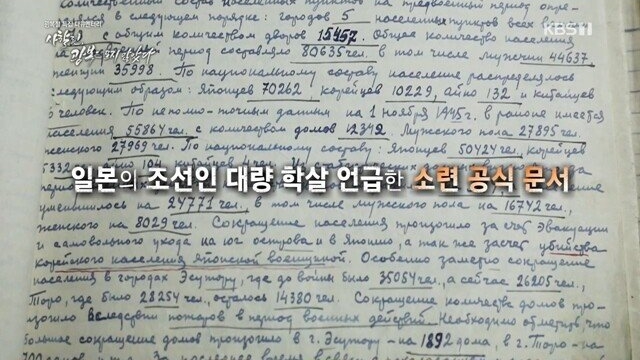 KBS1
количественный состав населенных пунктов на предвоенный период опре-
в следующем порядке: городов 5 населенных пунктов всех
с общим количеством дворов 15457. Общее количество населения
период составляло 80635 чел, в том числе мужчин 44637,
женщин 35998. По национальному составу население распределялось
следующим образом: Японцев 70262 корейцев 10229, айно 132 и китайцев
человек. По неполно-точным данным на 1 ноября 1945 г. в районе имеется
населения 55864 чел. с количеством домов 12349. Мужского пола 27895 чел.
женского 27969 чел. По национальному составу: Японцев 50424 чел. корейцев
5332
일본의 조선인 대량 학살 언급한 소련 공식 문서
уменьшилось на 24771 чел., в том числе мужского пола на 16742 чел.,
женского на 8029 чел. Сокращение населения произошло за счет эвакуации
и самовольного ухода на юг острова и в Японию, а так же за счет убийства
корейского населения японской военщиной. Особенно заметно сокращение
населения в городах Эсутору, где до войны было 35054 чел, а сейчас 26205 чел.
Торо, где было 28254 чел., осталось 14380 чел. Сокращение количества домов про-
изошло вследствии пожаров в период военных действий. Необходимо отметить, что
большое сокращение домов произошло в г. Эсутору - на 1892 дома, в г. Торо - на